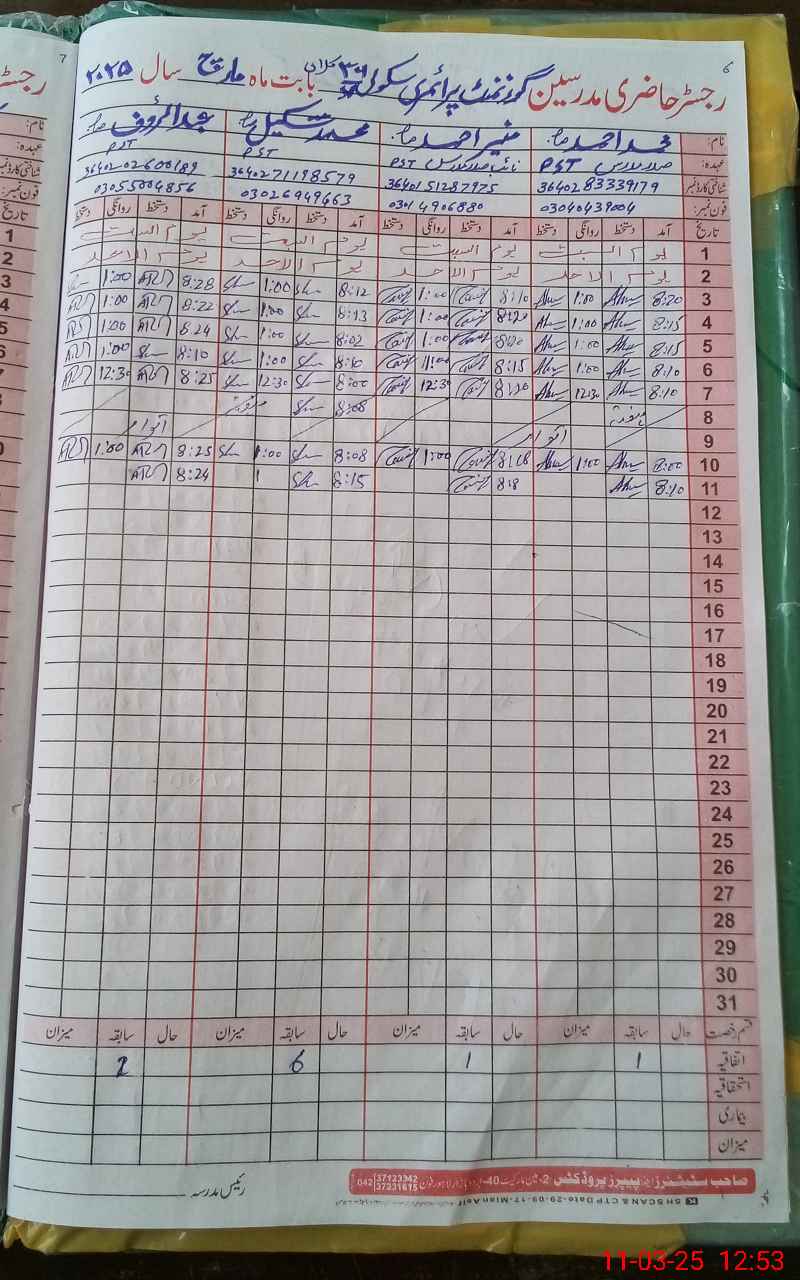 6
رجسٹر حاضری مدرسین گورنمنٹ پرائمری سکول 36 بابت ماہ مارچ سال ۲۰۲۵
نام: محمد احمد منیر احمد محمد شکیل عبدالرؤف
عہدہ: صدر مدرس PST نائب صدر مدرس PST PST PST
شناختی کارڈ نمبر 3640283339179 3640151287975 3640271198579 3640202600189
فون نمبر: 03040439004 03014906880 03026949663 03055004856
تاریخ آمد دستخط روانگی دستخط آمد دستخط روانگی دستخط آمد دستخط روانگی دستخط آمد دستخط روانگی دستخط
1 یوم السبت یوم السبت یوم السبت یوم السبت
2 یوم الاحد یوم الاحد یوم الاحد یوم الاحد
3 8:20 1:00 8:10 1:00 8:12 1:00 8:28 1:00
4 8:15 1:00 8:20 1:00 8:13 1:00 8:22 1:00
5 8:15 1:00 8:20 1:00 8:02 1:00 8:24 1:00
6 8:10 1:00 8:15 1:00 8:10 1:00 8:10 1:00
7 8:10 12:30 8:20 12:30 8:00 12:30 8:25 12:30
8 ہفتہ 8:08
9 اتوار اتوار
10 8:00 1:00 8:18 1:00 8:08 1:00 8:25 1:00
11 8:10 8:18 8:15 1 8:24
12
13
14
15
16
17
18
19
20
21
22
23
24
25
26
27
28
29
30
31
قسم رخصت حال سابقہ میزان حال سابقہ میزان حال سابقہ میزان حال سابقہ میزان
اتفاقیہ 1 1 6 2
استحقاقیہ
بیماری
میزان
صاحب سٹیشنرز اینڈ پیپرز پروڈکٹس 2- 40- لاہور فون 042 37123342 37231615
رئیس مدرسہ
11-03-25 12:53